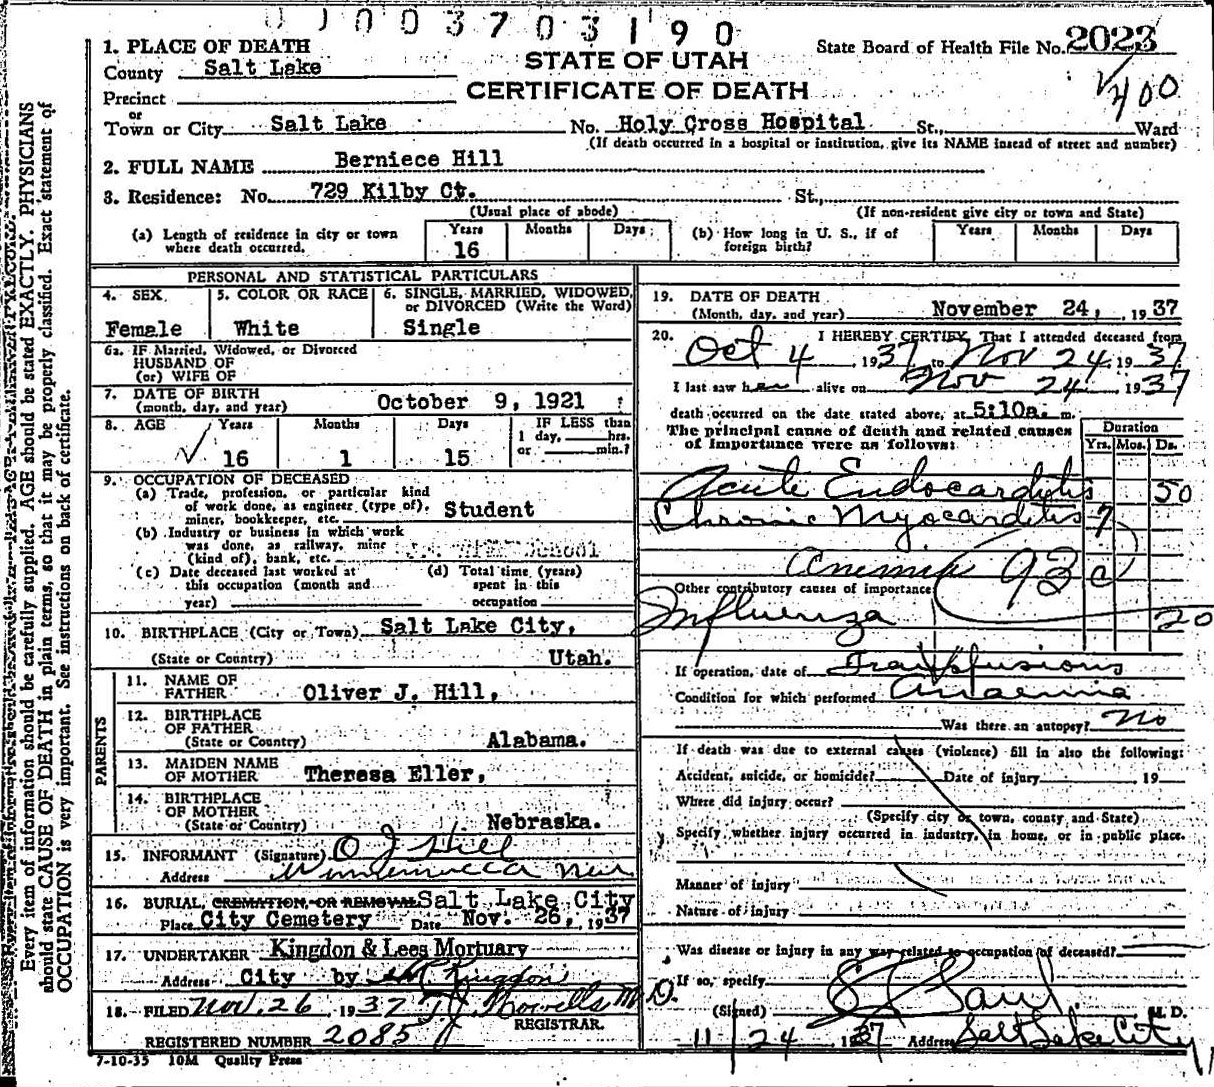 0003703190
1. PLACE OF DEATH
County Salt Lake
STATE OF UTAH
CERTIFICATE OF DEATH
State Board of Health File No. 2023
400
Precinct
or
Town or City Salt Lake No. Holy Cross Hospital St., Ward
(If death occurred in a hospital or institution, give its NAME insead of street and number)
2. FULL NAME Berniece Hill
3. Residence: No. 729 Kilby Ct. St.,
(Usual place of abode) (If non-resident give city or town and State)
(a) Length of residence in city or town where death occurred. Years 16 Months Days
(b) How long in U. S., if of foreign birth? Years Months Days
PERSONAL AND STATISTICAL PARTICULARS
4. SEX Female
5. COLOR OR RACE White
6. SINGLE, MARRIED, WIDOWED, or DIVORCED (Write the Word) Single
6a. IF Married, Widowed, or Divorced
HUSBAND OF
(or) WIFE OF
7. DATE OF BIRTH
(month, day, and year) October 9, 1921
8. AGE Years 16 Months 1 Days 15
IF LESS than
1 day, hrs.
or min.?
9. OCCUPATION OF DECEASED
(a) Trade, profession, or particular kind
of work done, as engineer (type of),
miner, bookkeeper, etc. Student
(b) Industry or business in which work
was done, as railway, mine
(kind of), bank, etc. School
(c) Date deceased last worked at
this occupation (month and
year)
(d) Total time (years)
spent in this
occupation
10. BIRTHPLACE (City or Town) Salt Lake City,
(State or Country) Utah.
PARENTS
11. NAME OF
FATHER Oliver J. Hill,
12. BIRTHPLACE
OF FATHER
(State or Country) Alabama.
13. MAIDEN NAME
OF MOTHER Theresa Eller,
14. BIRTHPLACE
OF MOTHER
(State or Country) Nebraska.
15. INFORMANT (Signature) O J Hill
Address Winnemucca Nev
16. BURIAL, CREMATION, OR REMOVAL Salt Lake City
Place City Cemetery Date Nov. 26, 1937
17. UNDERTAKER Kingdon & Lees Mortuary
Address City by Kingdon
18. FILED Nov. 26, 1937 T J Howells M D.
REGISTRAR.
REGISTERED NUMBER 2085
7-10-35 10M Quality Press
19. DATE OF DEATH
(Month, day, and year) November 24, 1937
20. I HEREBY CERTIFY, That I attended deceased from
Oct 4, 1937 to Nov 24, 1937
I last saw her alive on Nov 24 1937
death occurred on the date stated above, at 5:10a. m.
The principal cause of death and related causes
of importance were as follows:
Duration
Yrs. Mos. Ds.
Acute Endocarditis 50
Chronic Myocarditis 7
Anemia 93 c
Other contributory causes of importance:
Influenza 20
If operation, date of Transfusions
Condition for which performed Anaemia
Was there an autopsy? No
If death was due to external causes (violence) fill in also the following:
Accident, suicide, or homicide? Date of injury 19
Where did injury occur?
(Specify city or town, county and State)
Specify whether injury occurred in industry, in home, or in public place.
Manner of injury
Nature of injury
Was disease or injury in any way related to occupation of deceased?
If so, specify
(Signed) M. D.
11/24 1937 Address Salt Lake City
Every item of information should be carefully supplied. AGE should be stated EXACTLY. PHYSICIANS
should state CAUSE OF DEATH in plain terms, so that it may be properly classified. Exact statement of
OCCUPATION is very important. See instructions on back of certificate.